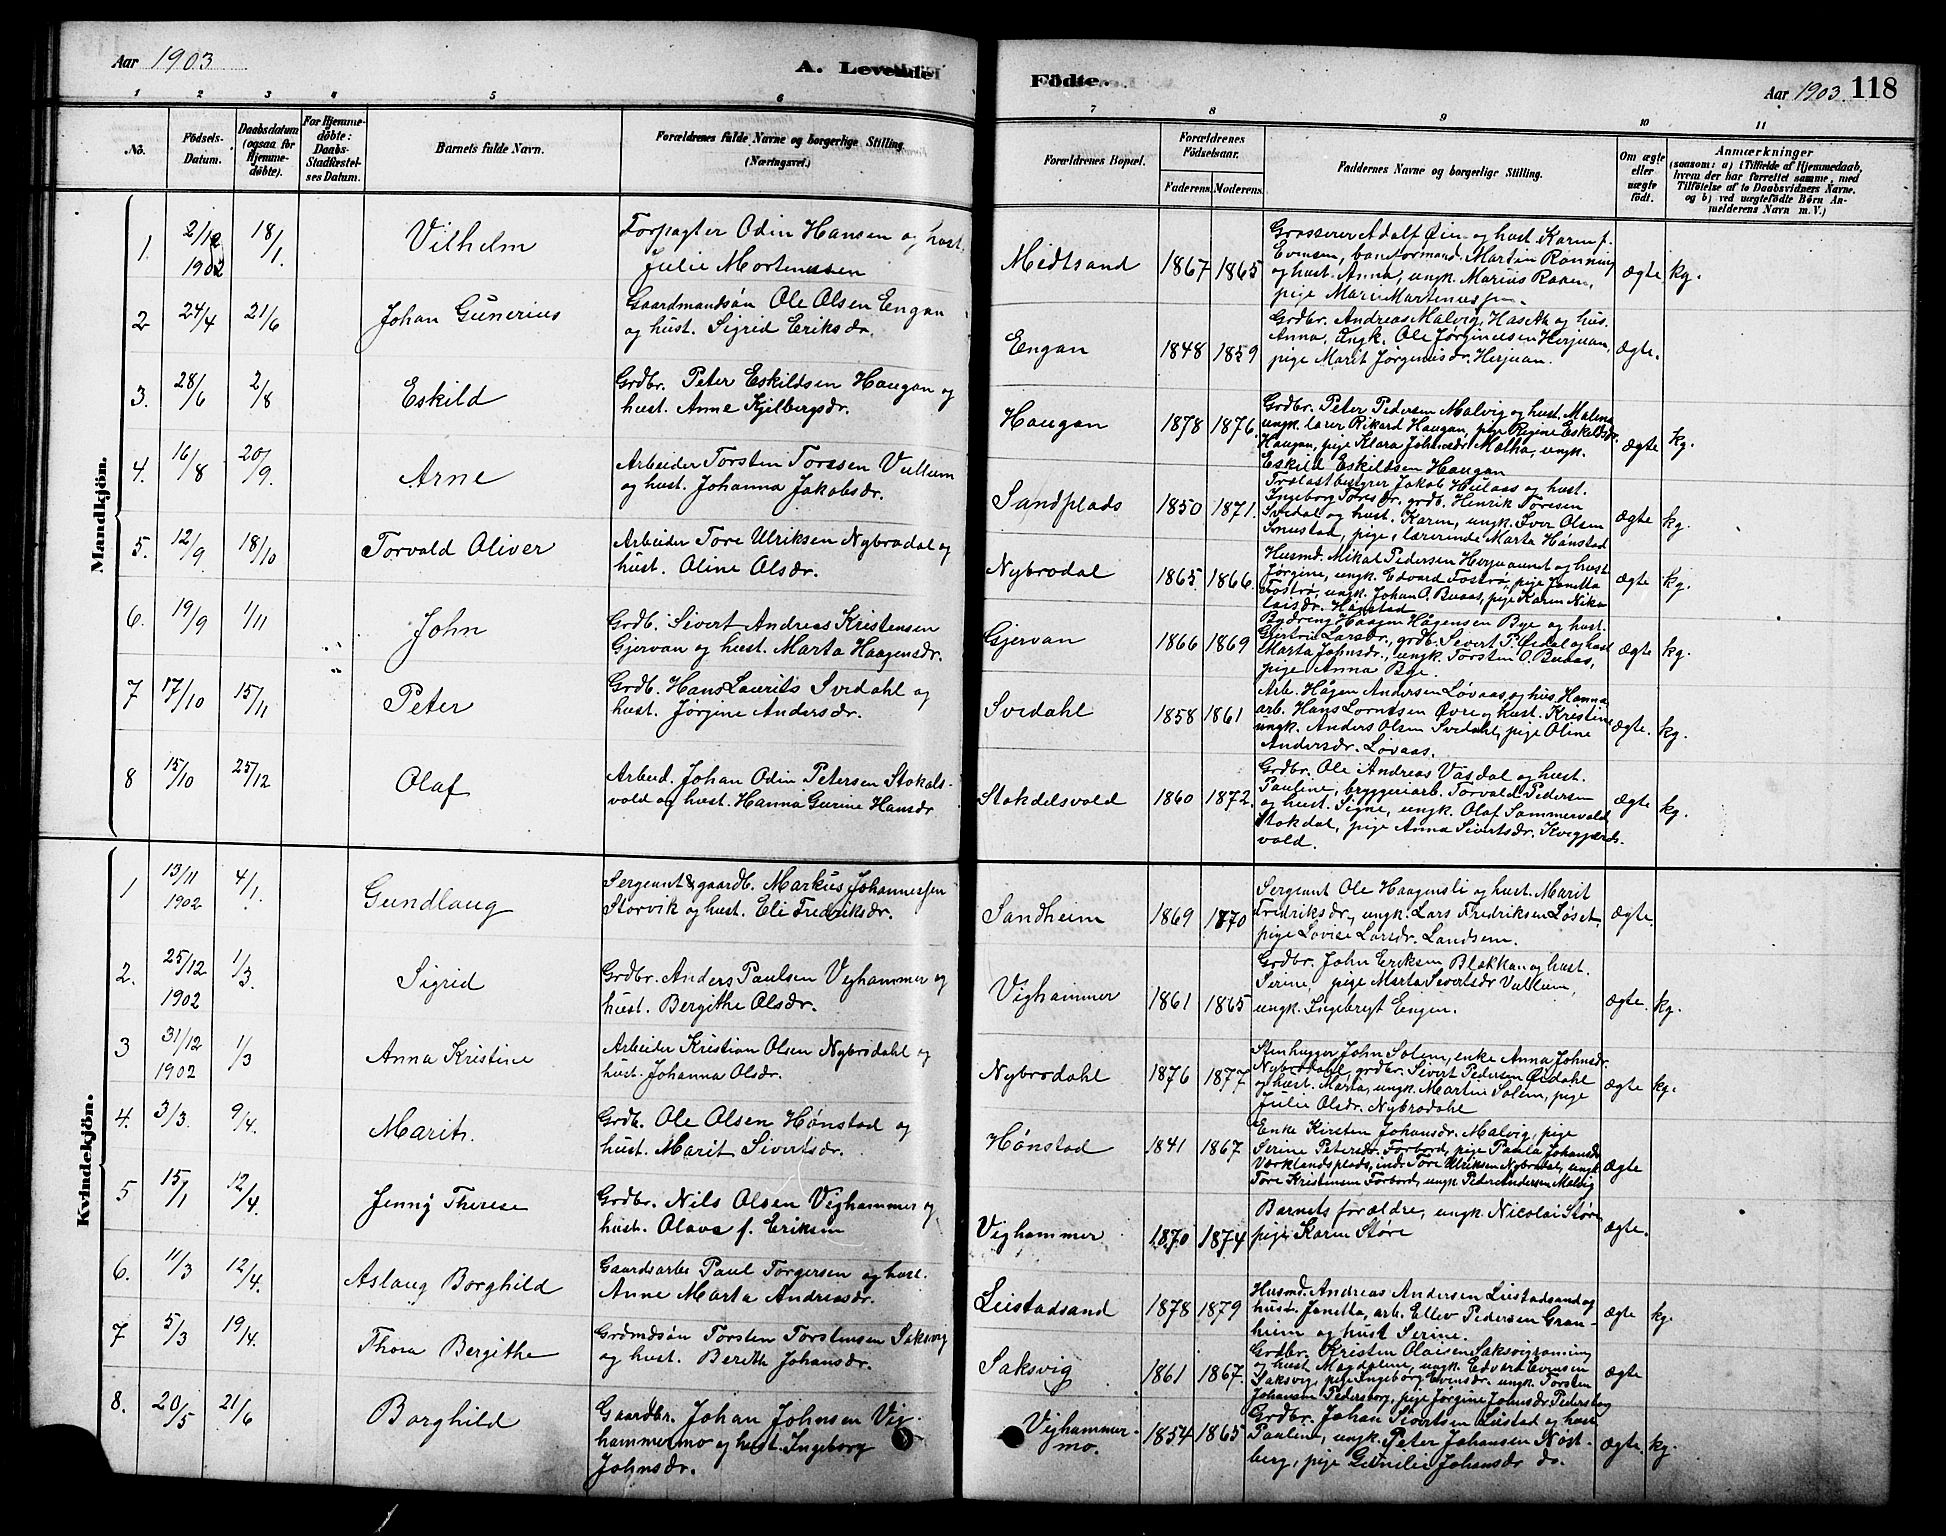 Aar 1903
A. Levende
Födte.
Aar 1903.
118
1 2 3 4 5 6 7 8 9 10 11
No.
Födsels-
Datum.
Daabsdatum
(ogsaa for
Hjemme-
döbte).
For Hjemme-
döbte:
Daabs-
Stadfæstel-
ses Datum.
Barnets fulde Navn.
Forældrenes fulde Navne og borgerlige Stilling
(Næringsvei.)
Forældrenes Bopæl.
Forældrenes
Födselsaar.
Faderens. Moderens.
Faddernes Navne og borgerlige Stilling.
Om ægte
eller
uægte
födt.
Anmærkninger
(saasom: a) i Tilfælde af Hjemmedaab,
hvem der har forrettet samme, med
Tilföielse af to Daabsvidners Navne.
og b) ved uægtefödte Börn An-
melderens Navn m. V.)
Mandkjön.
1. 2/12 1902 18/1. Vilhelm
Forpagter Odin Hansen og hust.
Julie Mortenssen
Midtsand 1867 1865
Grosserer Adolf Øien og hust. Karen f.
Evensen, banformand Morten Rønning
og hust. Anna, ungk. Marius Raaen,
pige Marie Martenussen.
ægte kg.
2 24/4 21/6 Johan Gunerius
Gaardmandsøn Ole Olsen Engan
og hust. Sigrid Eriksdr.
Engan 1848 1859
Grdbr. Andreas Malvig, Haseth og hus.
Anna, Ungk. Ole Jørginussen Herjuan,
pige Marit Jørginusdr. Herjuan.
ægte.
3. 28/6 2/8 Eskild
Grdbr. Peter Eskildsen Haugan og
hust. Anne Kjelbergsdr.
Haugan 1878 1876.
Grdbr. Peter Pedersen Malvig og hust. Malena
ungk. lærer Rikard Haugan, pige Regine Eskildsdr.
Haugan, pige Klara Johnsdr. Malka, ungk.
Eskild Eskildsen Haugan
ægte kg.
4. 16/8 20/9. Arne
Arbeider Torsten Torssen Vullum
og hust. Johanna Jakobsdr.
Sandplads 1850 1871.
Trælastbestyrer Jakob Hulaas og hust.
Ingeborg Toresdr. grdb. Henrik Toresen
Svedal og hust. Karen, ungk. Iver Olsen
Smustad, pige, lærerinde Marta Hønstad
ægte kg.
5. 12/9 18/10 Torvald Oliver
Arbeider Tore Ulriksen Nybrodal og
hust. Oline Olsdr.
Nybrodal 1865 1866.
Husmd. Mikal Pedersen Herjuaunet og hust.
Jørgine, ungk. Edvard Fostrø, pige Janetta
Fostrø, ungk. Johan O. Buaas, pige Karen Niko-
laisdr. Hønstad
ægte kg.
6. 19/9 1/11 John
Grdb. Sivert Andreas Kristensen
Gjervan og hust. Marta Haagensdr.
Gjervan 1866 1869
Bygdring Haagen Hågensen Bye og hust.
Gjertru Larsdr., grdb. Sivert P. Øsdal og hust
Marta Johnsdr., ungk. Torsten O. Buaas,
pige Anna Bye.
ægte kg.
7 17/10 15/11 Peter
Grdb. Hans Laurits Svedahl og
hust. Jørgine Andersdr.
Svedahl 1858 1861
Arb. Hågen Andersen Løvaas og hus. Hanna
arb. Hans Lorntsen Øvre og hust. Kristine
ungk. Anders Olsen Svedahl, pige Oline
Andersdr. Løvaas.
ægte. kg.
8 15/10 25/12 Olaf
Arbeid. Johan Odin Petersen Stokdals-
vold og hust. Hanna Gurine Hansdr
Stokdelsvold 1860 1872.
Grdbr. Ole Andreas Vasdal og hust.
Pauline, bryggeriarb. Torvald Pedersen
og hust. Signe, ungk. Olaf Sommervold
Stokdal, pige Anna Sivertsdr. Kvegjærds-
vold.
ægte kg.
Kvindekjön.
1 13/11 1902 4/1. Gundlaug
Sergeant & gaardb. Markus Johannessen
Storvik og hust. Eli Fredriksdr.
Sandheim 1869 1870
Sergeant Ole Haagensli og hust. Marit
Fredriksdr, ungk. Lars Fredriksen Løset,
pige Lovise Larsdr. Landsem.
ægte.
2. 25/12 1902 1/3. Sigrid
Grdbr. Anders Paulsen Vighammer og
hust. Bergithe Olsdr.
Vighammer 1861 1865
Grdbr. John Eriksen Blekkan og hust.
Serine, pige Marta Sivertsdr Vullum,
ungk. Ingebrygt Engen.
ægte kg.
3 31/12 1902 1/3 Anna Kristine
Arbeider Kristian Olsen Nybrodahl og
hust. Johanna Olsdr.
Nybrodahl 1876 1877
Stenhugger John Solem, enke Anna Johnsdr.
Nybrodahl, grdbr. Sivert Pedersen Øsdahl
og hust. Marta, ungk. Martin Solem, pige
Julie Olsdr. Nybrodahl
ægte kg.
4. 3/3. 9/4. Marit.
Grdb. Ole Olsen Hønstad og
hust. Marit Sivertsdr.
Hønstad 1841 1867
Enke Kirsten Johansdr. Malvig, pige
Serine Petersdr. Forbord, pige Paula Johansdr
Værklandsplads, indr. Tore Ulriksen Nybrodal, ungk
Tore Kristensen Forbord, ungk Peder Andersen Malvig
ægte
5 15/1 12/4. Jenny Therese
Grdbr. Nils Olsen Vighammer og
hust. Olava f. Eriksen
Vighammer 1870 1874
Barnets forældre, ungk. Nicolai Støre,
pige Karen Støre
ægte.
6. 11/3 12/4. Aslaug Borghild
Gaardsarber Paul Torgersen og hust.
Anne Marta Andreasdr.
Leistadsand 1878 1879
Husmd. Andreas Andersen Leistadsand og
hust. Janetta, arb. Ellev Pedersen Gran-
heim og hust Serine.
ægte kg.
7 5/3 19/4. Thora Bergithe
Grdmdsøn Torsten Torstensen Saksvig
og hust. Bereth Johansdr.
Saksvig 1861 1867.
Grdbr. Kristen Olaisen Saksvigrønning
og hust Magdalene, ungk. Edvard Evensen
Saksvig, pige Ingeborg Evensdr. ungk. Torsten
Johansen Pedersborg, pige Jørgine Johnsdr Pedersborg
ægte
8. 20/5 21/6 Borghild
Gaardbr. Johan Johnsen Vig-
hammermo og hust. Ingeborg
Johnsdr.
Vighammer-
mo. 1854 1865
Grdbr. Johan Sivertsen Leistad og hust
Pauline, ungk. Peter Johansen Nøst-
berg, pige Gunilie Johansdr do.
ægte. kg.